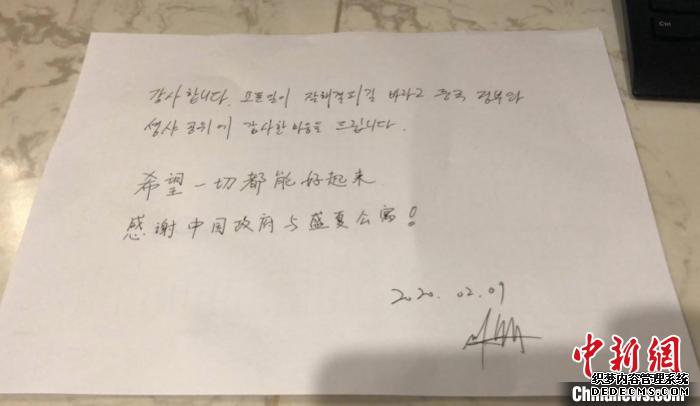 감사합니다. 모든일이 잘해결되길 바라고 중국 정부와
성샤 공위에 감사한 마음을 드립니다.
希望一切都能好起来
感谢中国政府与盛夏公寓!
2020.02.09
Ctrl
中新网
织梦内容管理系统
DEDECMS.COM
Chinanews.com